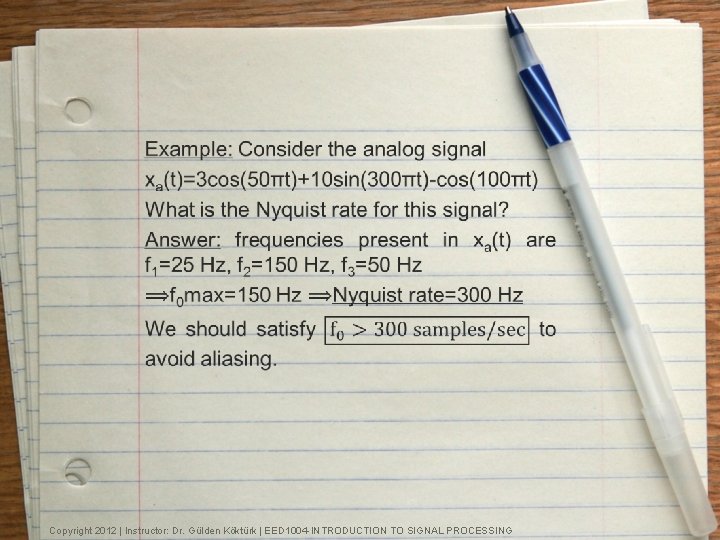 Example: Consider the analog signal
xₐ(t)=3cos(50πt)+10sin(300πt)-cos(100πt)
What is the Nyquist rate for this signal?
Answer: frequencies present in xₐ(t) are
f₁=25 Hz, f₂=150 Hz, f₃=50 Hz
⟹f₀max=150 Hz ⟹Nyquist rate=300 Hz
We should satisfy f₀ > 300 samples/sec to
avoid aliasing.
Copyright 2012 | Instructor: Dr. Gülden Köktürk | EED1004-INTRODUCTION TO SIGNAL PROCESSING